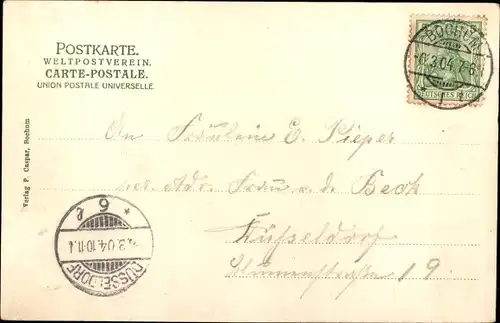 POSTKARTE.
WELTPOSTVEREIN.
CARTE-POSTALE.
UNION POSTALE UNIVERSELLE.
BOCHUM
3.04.7-8
DEUTSCHES REICH
An Fräulein E. Pieper
per Adr. Frau v. d. Beck
Düsseldorf
Blumenstraße 19.
Verlag P. Caspar, Bochum
3.04.10-11
DÜSSELDORF